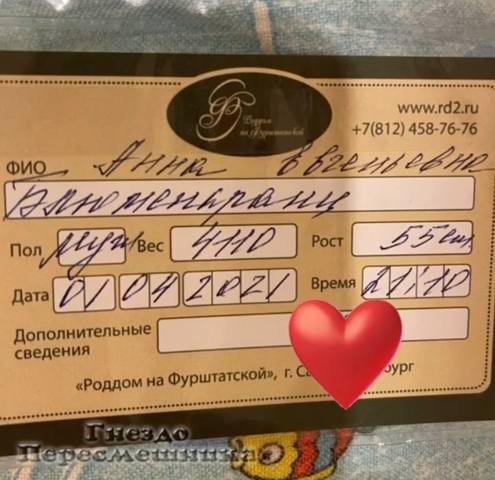 Роддом
на Фурштатской
www.rd2.ru
+7(812) 458-76-76
ФИО Анна Евгеньевна
Блюменкранц
Пол муж Вес 4110 Рост 55 см
Дата 01 04 2021 Время 21:10
Дополнительные
сведения
«Роддом на Фурштатской», г. Са бург
Гнездо
Пересмешника